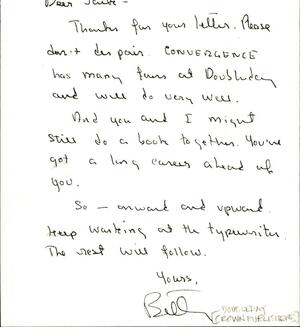 Dear
Thanks for your letter. Please
don't despair. CONVERGENCE
has many fans at Doubleday
and will do very well.
And you and I might
still do a book together. You've
got a long career ahead of
you.
So — onward and upward.
Keep working at the typewriter.
The rest will follow.
Yours,
Bill
[DOUBLEDAY
CROWN PUBLISHERS]